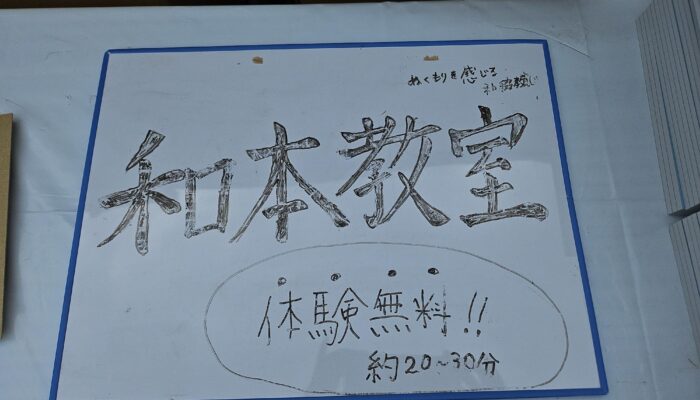 ぬくもりを感じる
和本教室
体験無料!!
約20~30分